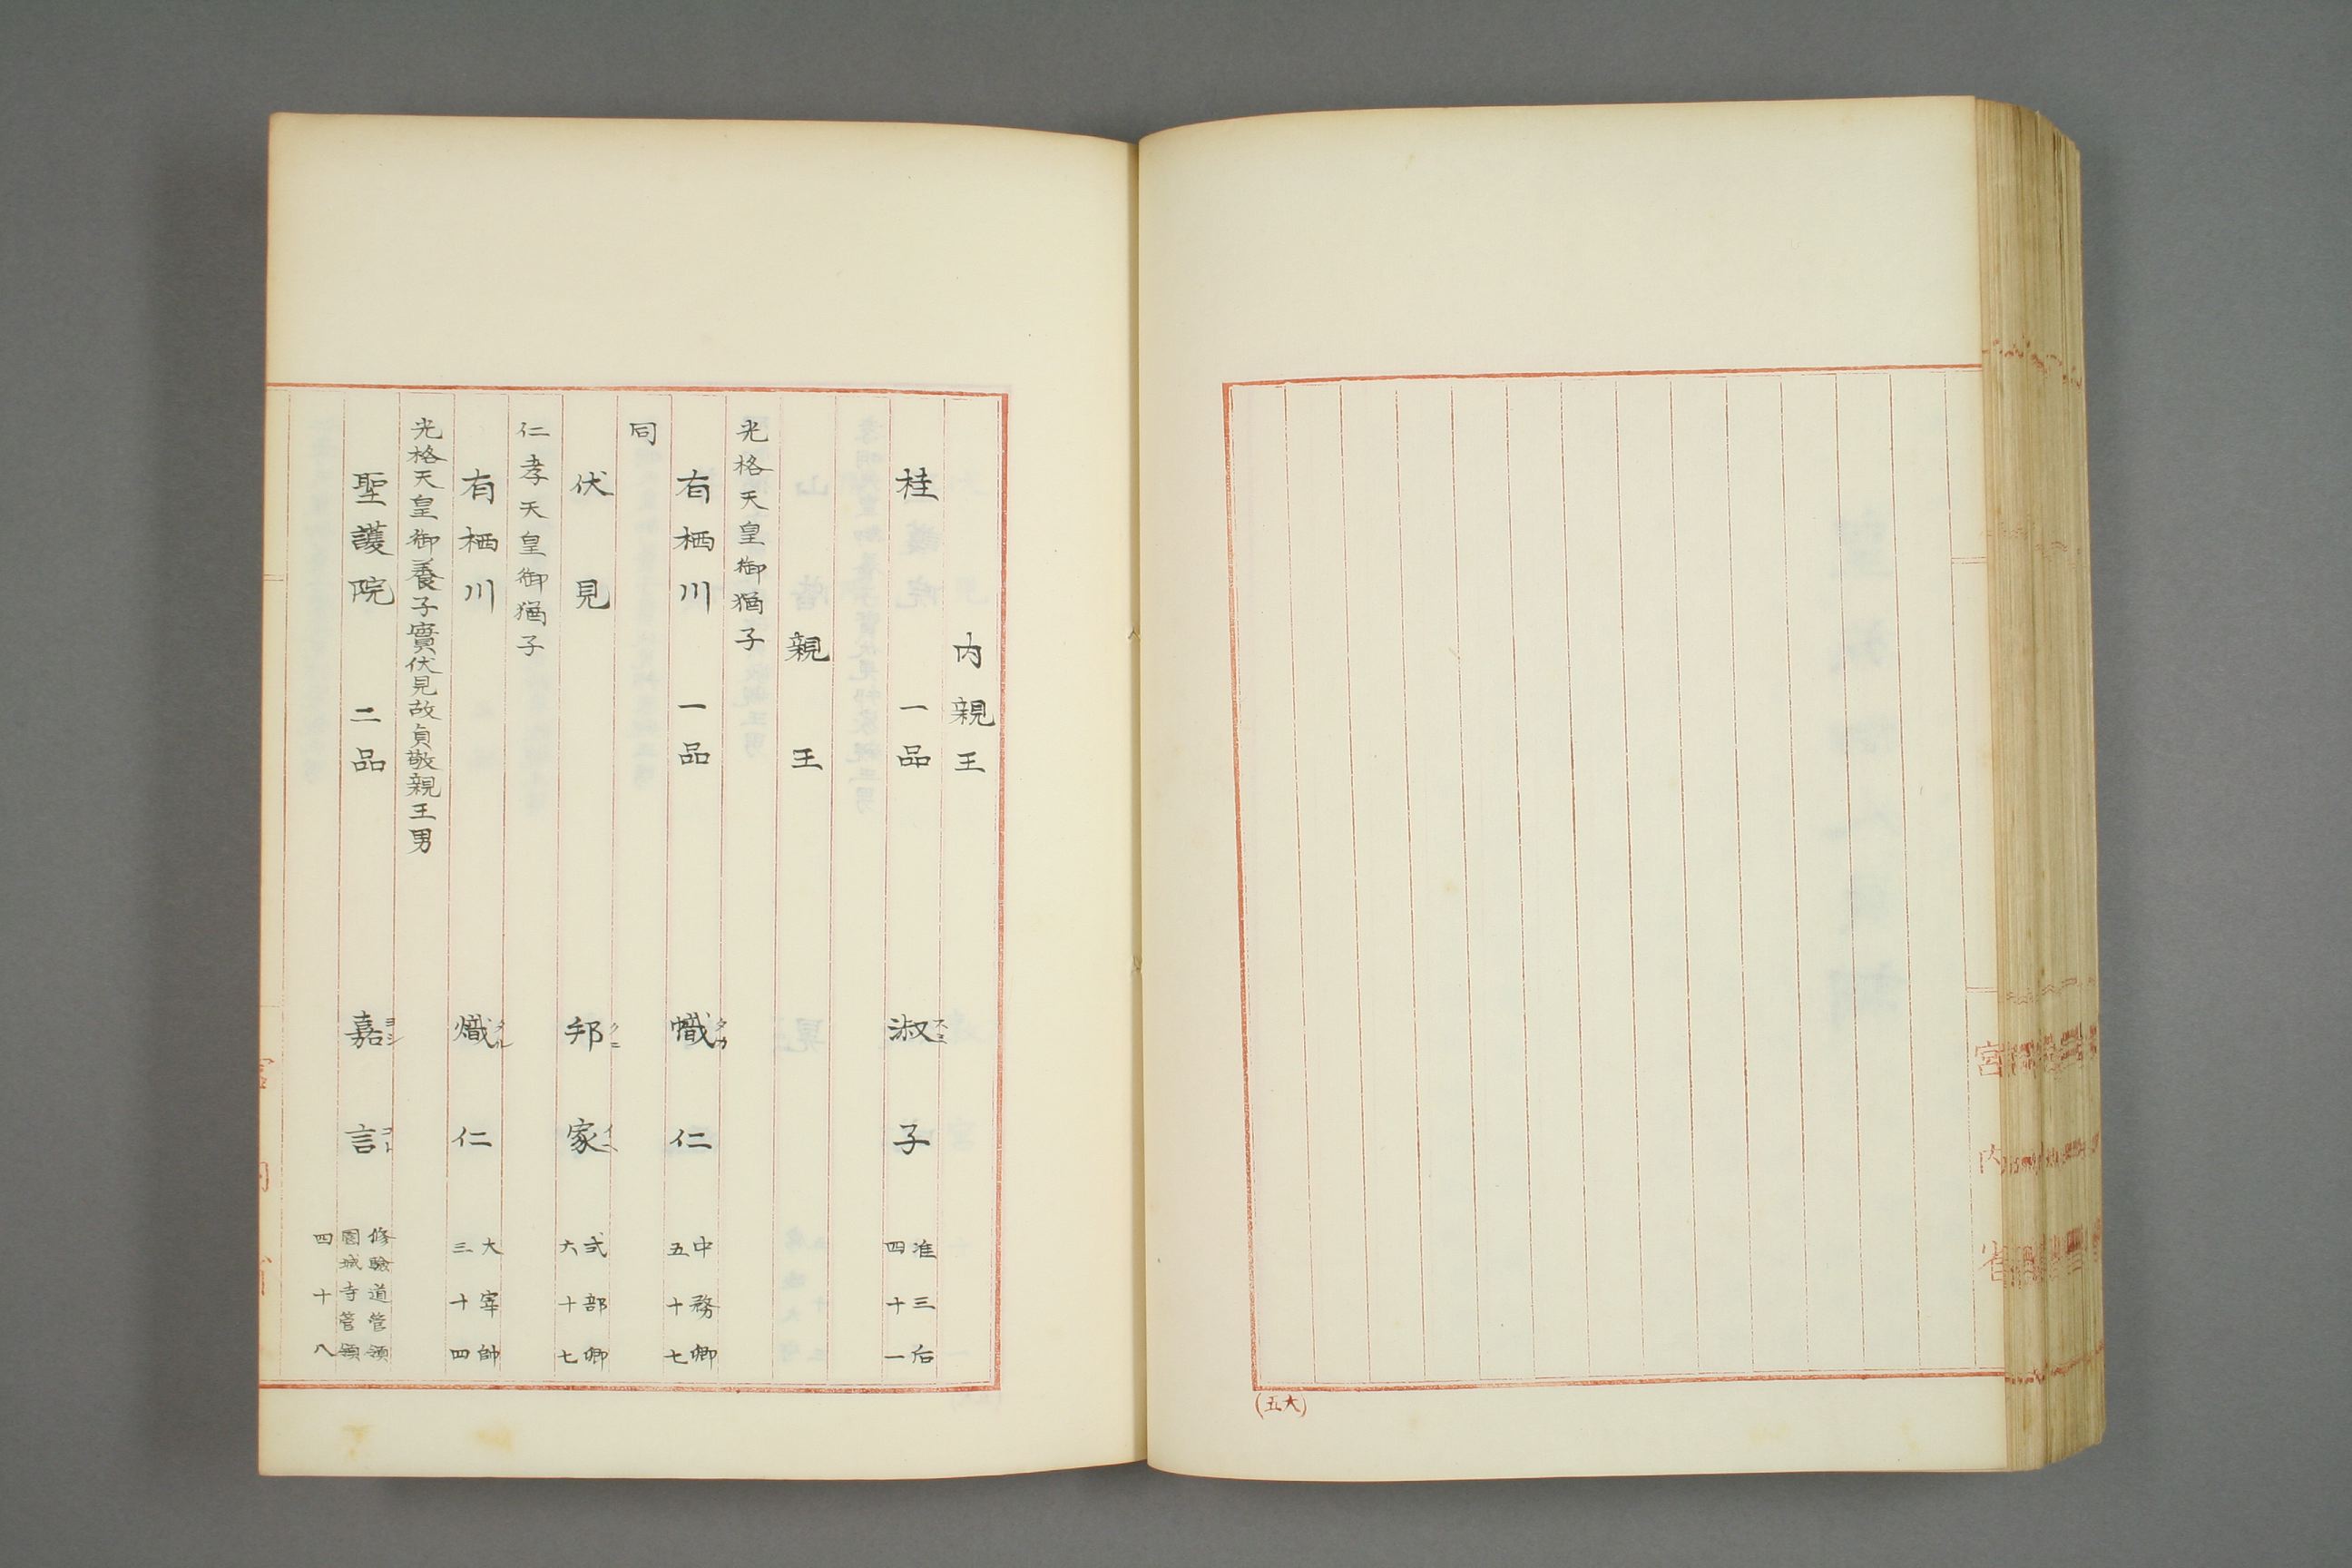 宮内省
(五大)
内親王
桂 一品 淑スミ子 准三后 四十一
親王
光格天皇御猶子
有栖川 一品 幟タカ仁 中務卿 五十七
同
伏見 邦クニ家イヘ 式部卿 六十七
仁孝天皇御猶子
有栖川 熾タル仁 大宰帥 三十四
光格天皇御養子實伏見故貞敬親王男
聖護院 二品 嘉ヨシ言コト 修驗道管領 園城寺管領 四十八